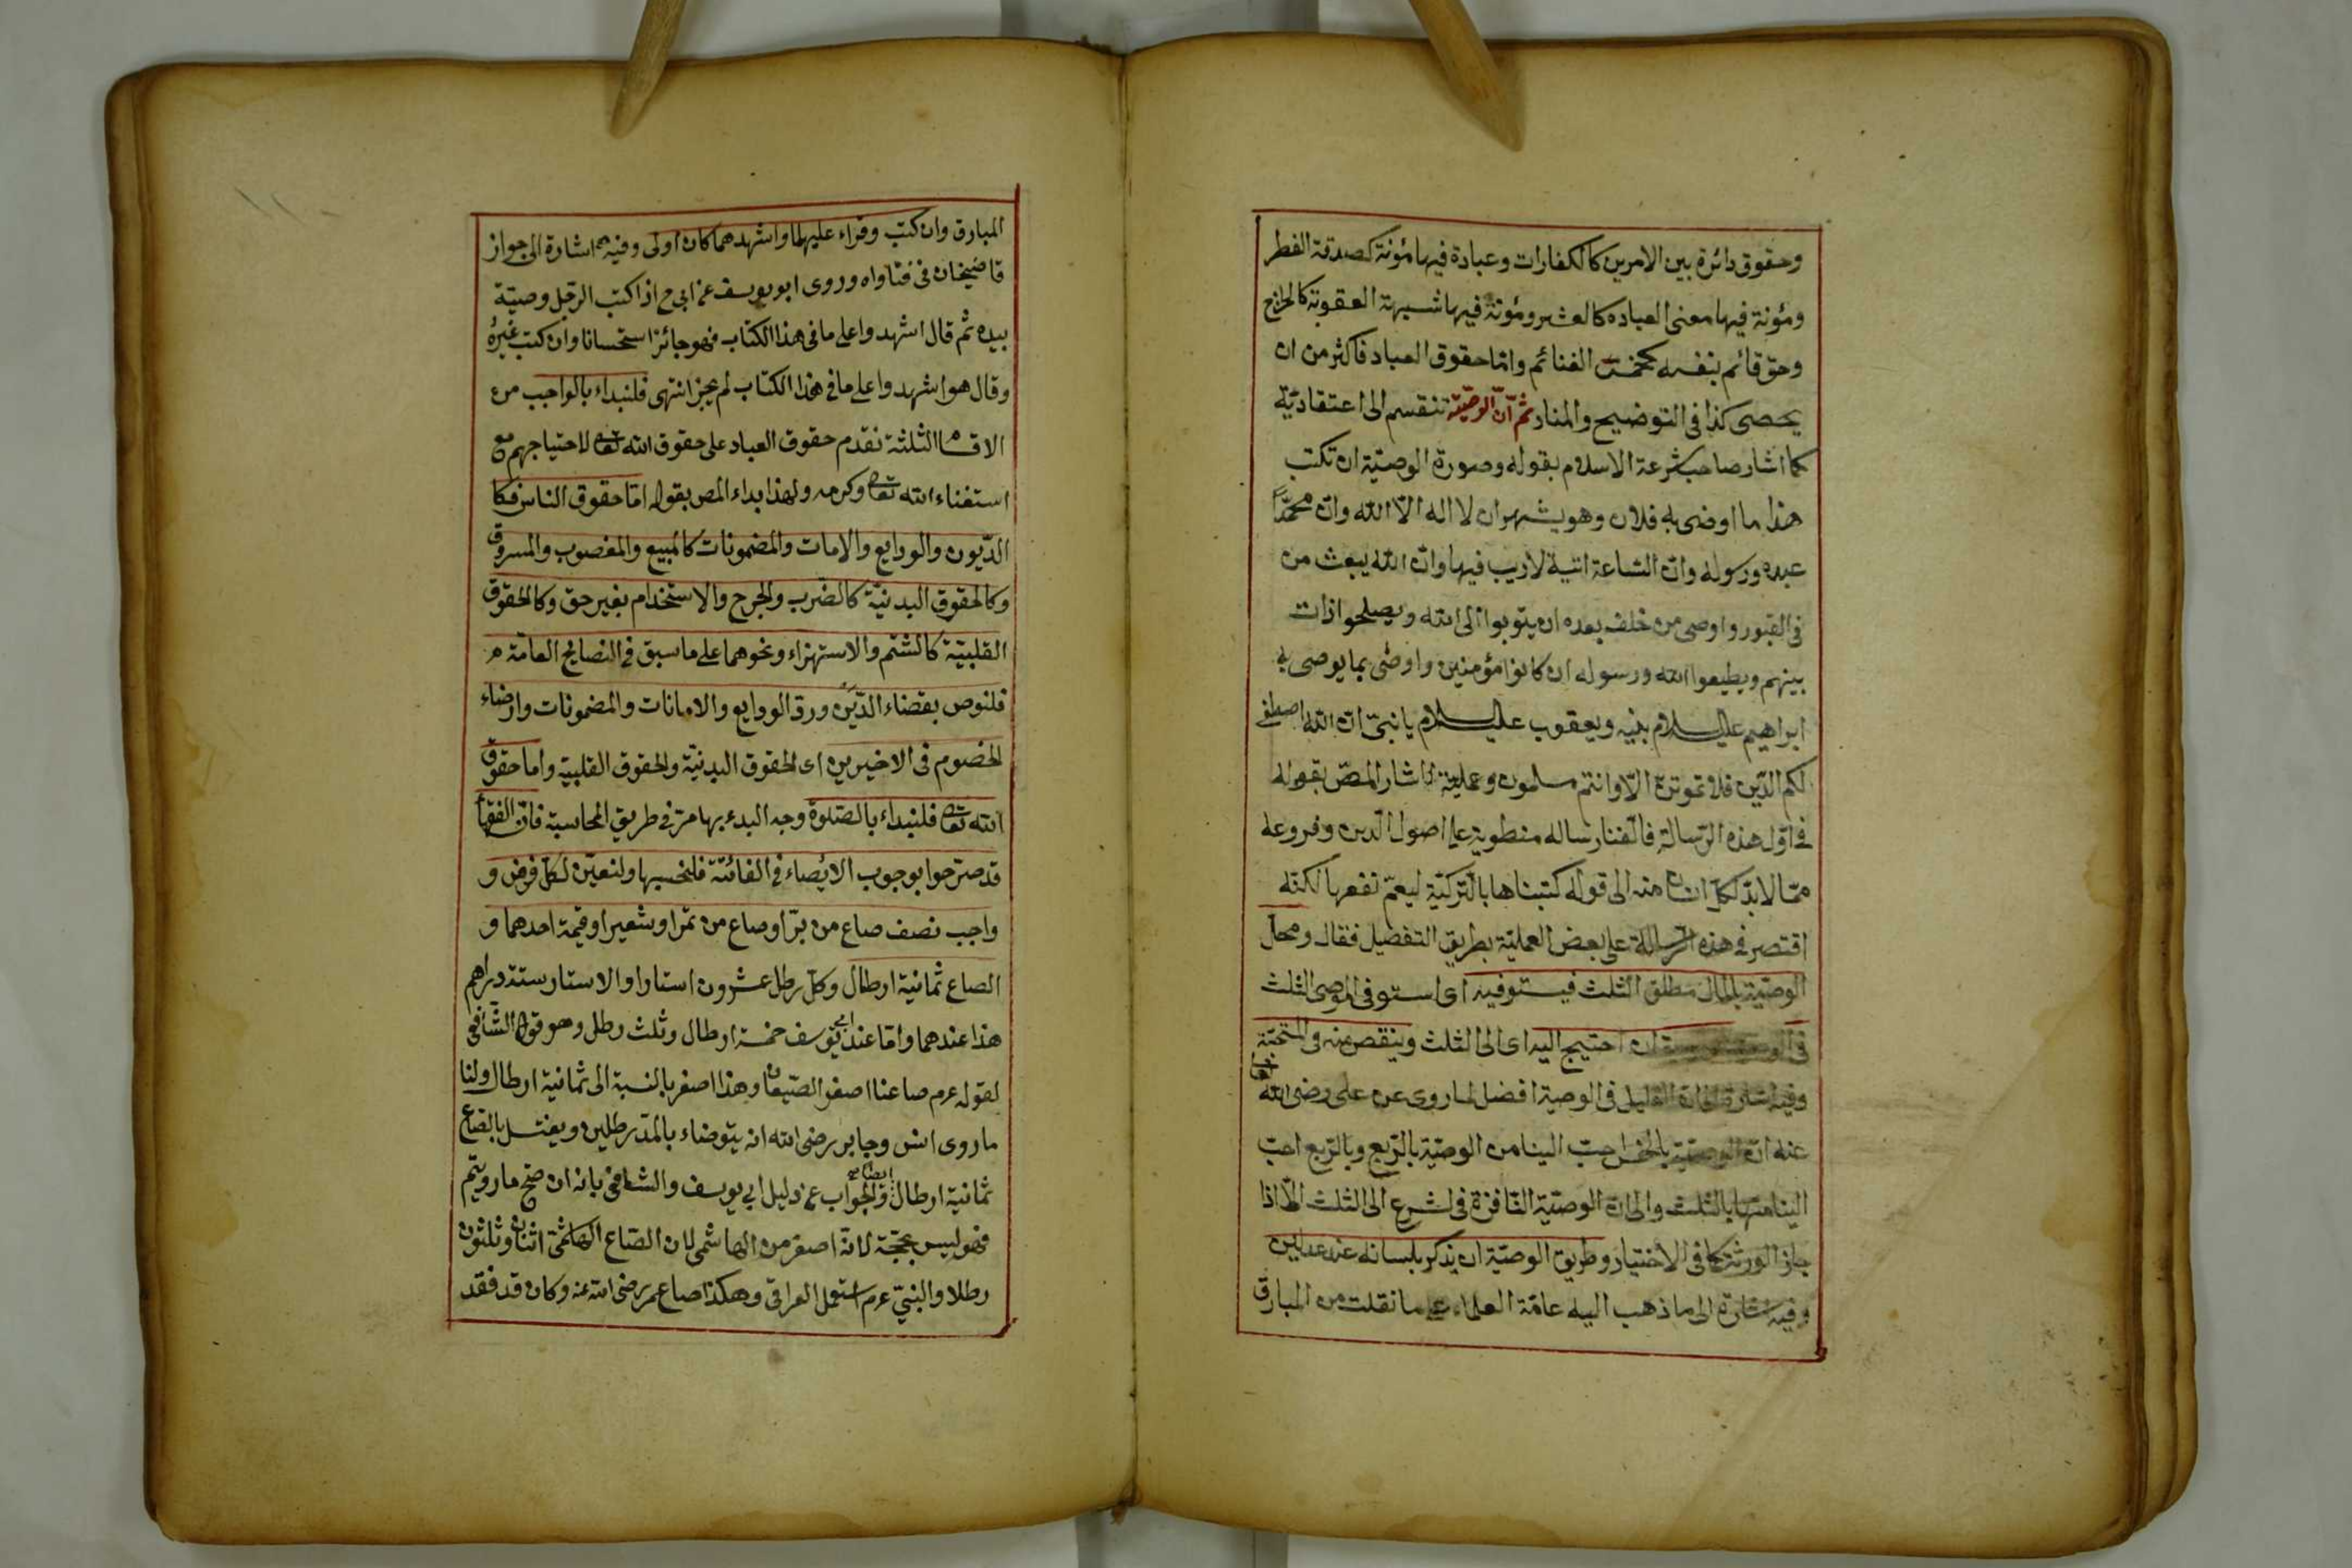 وحقوق دائرة بين الامرين كالكفارات وعبادة فيها مؤنة كصدقة الفطر
ومؤنة فيها معنى العباده كالعشر ومؤنة فيها شبهة العقوبة كالخراج
وحق قائم بنفسه كخمس الغنائم واما حقوق العباد فاكثر من ان
يحصى كذا فى التوضيح والمنار ثم ان الوصية تنقسم الى اعتقادية
كما اشار صاحب شرعة الاسلام بقوله وصورة الوصية ان تكتب
هذا ما اوصى به فلان وهو يشهد ان لا اله الا الله وان محمدا
عبده ورسوله وان الساعة اتية لا ريب فيها وان الله يبعث من
فى القبور واوصى من خلف بعده ان يتوبوا الى الله ويصلحوا ذات
بينهم ويطيعوا الله ورسوله ان كانوا مؤمنين واوصى بما يوصى به
ابراهيم عليه السلام بنيه ويعقوب عليه السلام يا بنى ان الله اصطفى
لكم الدين فلا تموتن الا وانتم مسلمون وعملية اشار المص بقوله
فى اول هذه الرسالة فالفنا رسالة منطوية على اصول الدين وفروعه
مما لا بد لكل انسان منه الى قوله كتبناها بالتركية ليعم نفعها لكنه
اقتصر فى هذه الرسالة على بعض العملية بطريق التفصيل فقال ومحل
الوصية بالمال مطلق الثلث فيستوفيه اى استوفى الموصى الثلث
فى الوصية ان احتيج اليه اى الى الثلث وينقص منه فى
وفيه اشارة الى ان القليل فى الوصية افضل لما روى عن على رضى الله
عنه ان الوصية بالخمس احب الينا من الوصية بالربع وبالربع احب
الينا منها بالثلث والى ان الوصية النافذة فى الشرع الى الثلث الا اذا
جاز الورثة كما فى الاختيار وطريق الوصية ان يذكر بلسانه عند عدلين
وفيه اشارة الى ما ذهب اليه عامة العلماء على ما نقلت من المبارق
المبارق وان كتب وقراء عليهما واشهدهما كان اولى وفيه اشارة الى جواز
قاضيخان فى فتاواه وروى ابو يوسف عن ابى ح اذا كتب الرجل وصيته
بيده ثم قال اشهدوا على ما فى هذا الكتاب فهو جائز استحسانا وان كتب غيره
وقال هو اشهدوا على ما فى هذا الكتاب لم يجز انتهى فلنبداء بالواجب من
الاقسام الثلثة نقدم حقوق العباد على حقوق الله تعالى لاحتياجهم مع
استغناء الله تعالى وكرمه ولهذا بداء المص بقوله اما حقوق الناس فكا
الديون والودايع والامات والمضمونات كالمبيع والمغصوب والمسروق
وكالحقوق البدنية كالضرب والجرح والاستخدام بغير حق وكالحقوق
القلبية كالشتم والاستهزاء ونحوهما على ما سبق فى النصائح العامة
فلنوص بقضاء الدين ورد الودايع والامانات والمضمونات وارضاء
الخصوم فى الاخيرين اى الحقوق البدنية والحقوق القلبية واما حقوق
الله تعالى فلنبداء بالصلوة وجه البدء بها مر فى طريق المحاسبة فان الفقهاء
قد صرحوا بوجوب الايصاء فى الفائتة فلنحسبها ولنعين لكل فرض و
واجب نصف صاع من بر او صاع من تمر او شعير او قيمة احدهما و
الصاع ثمانية ارطال وكل رطل عشرون استارا والاستار ستة دراهم
هذا عندهما واما عند ابى يوسف خمسة ارطال وثلث رطل وهو قول الشافعى
لقوله عرم صاعنا اصغر الصيعان وهذا اصغر بالنسبة الى ثمانية ارطال ولنا
ما روى انس وجابر رضى الله انه يتوضاء بالمد رطلين ويغتسل بالصاع
ثمانية ارطال ايضا والجواب عن دليل ابى يوسف والشافعى بانه ان صح ما رويتم
فهو ليس بحجة لانه اصغر من الهاشمى لان الصاع الهاشمى اثنان وثلثون
رطلا والنبى عرم استعمل العراقى وهكذا صاع عمر رضى الله عنه وكان قد فقد